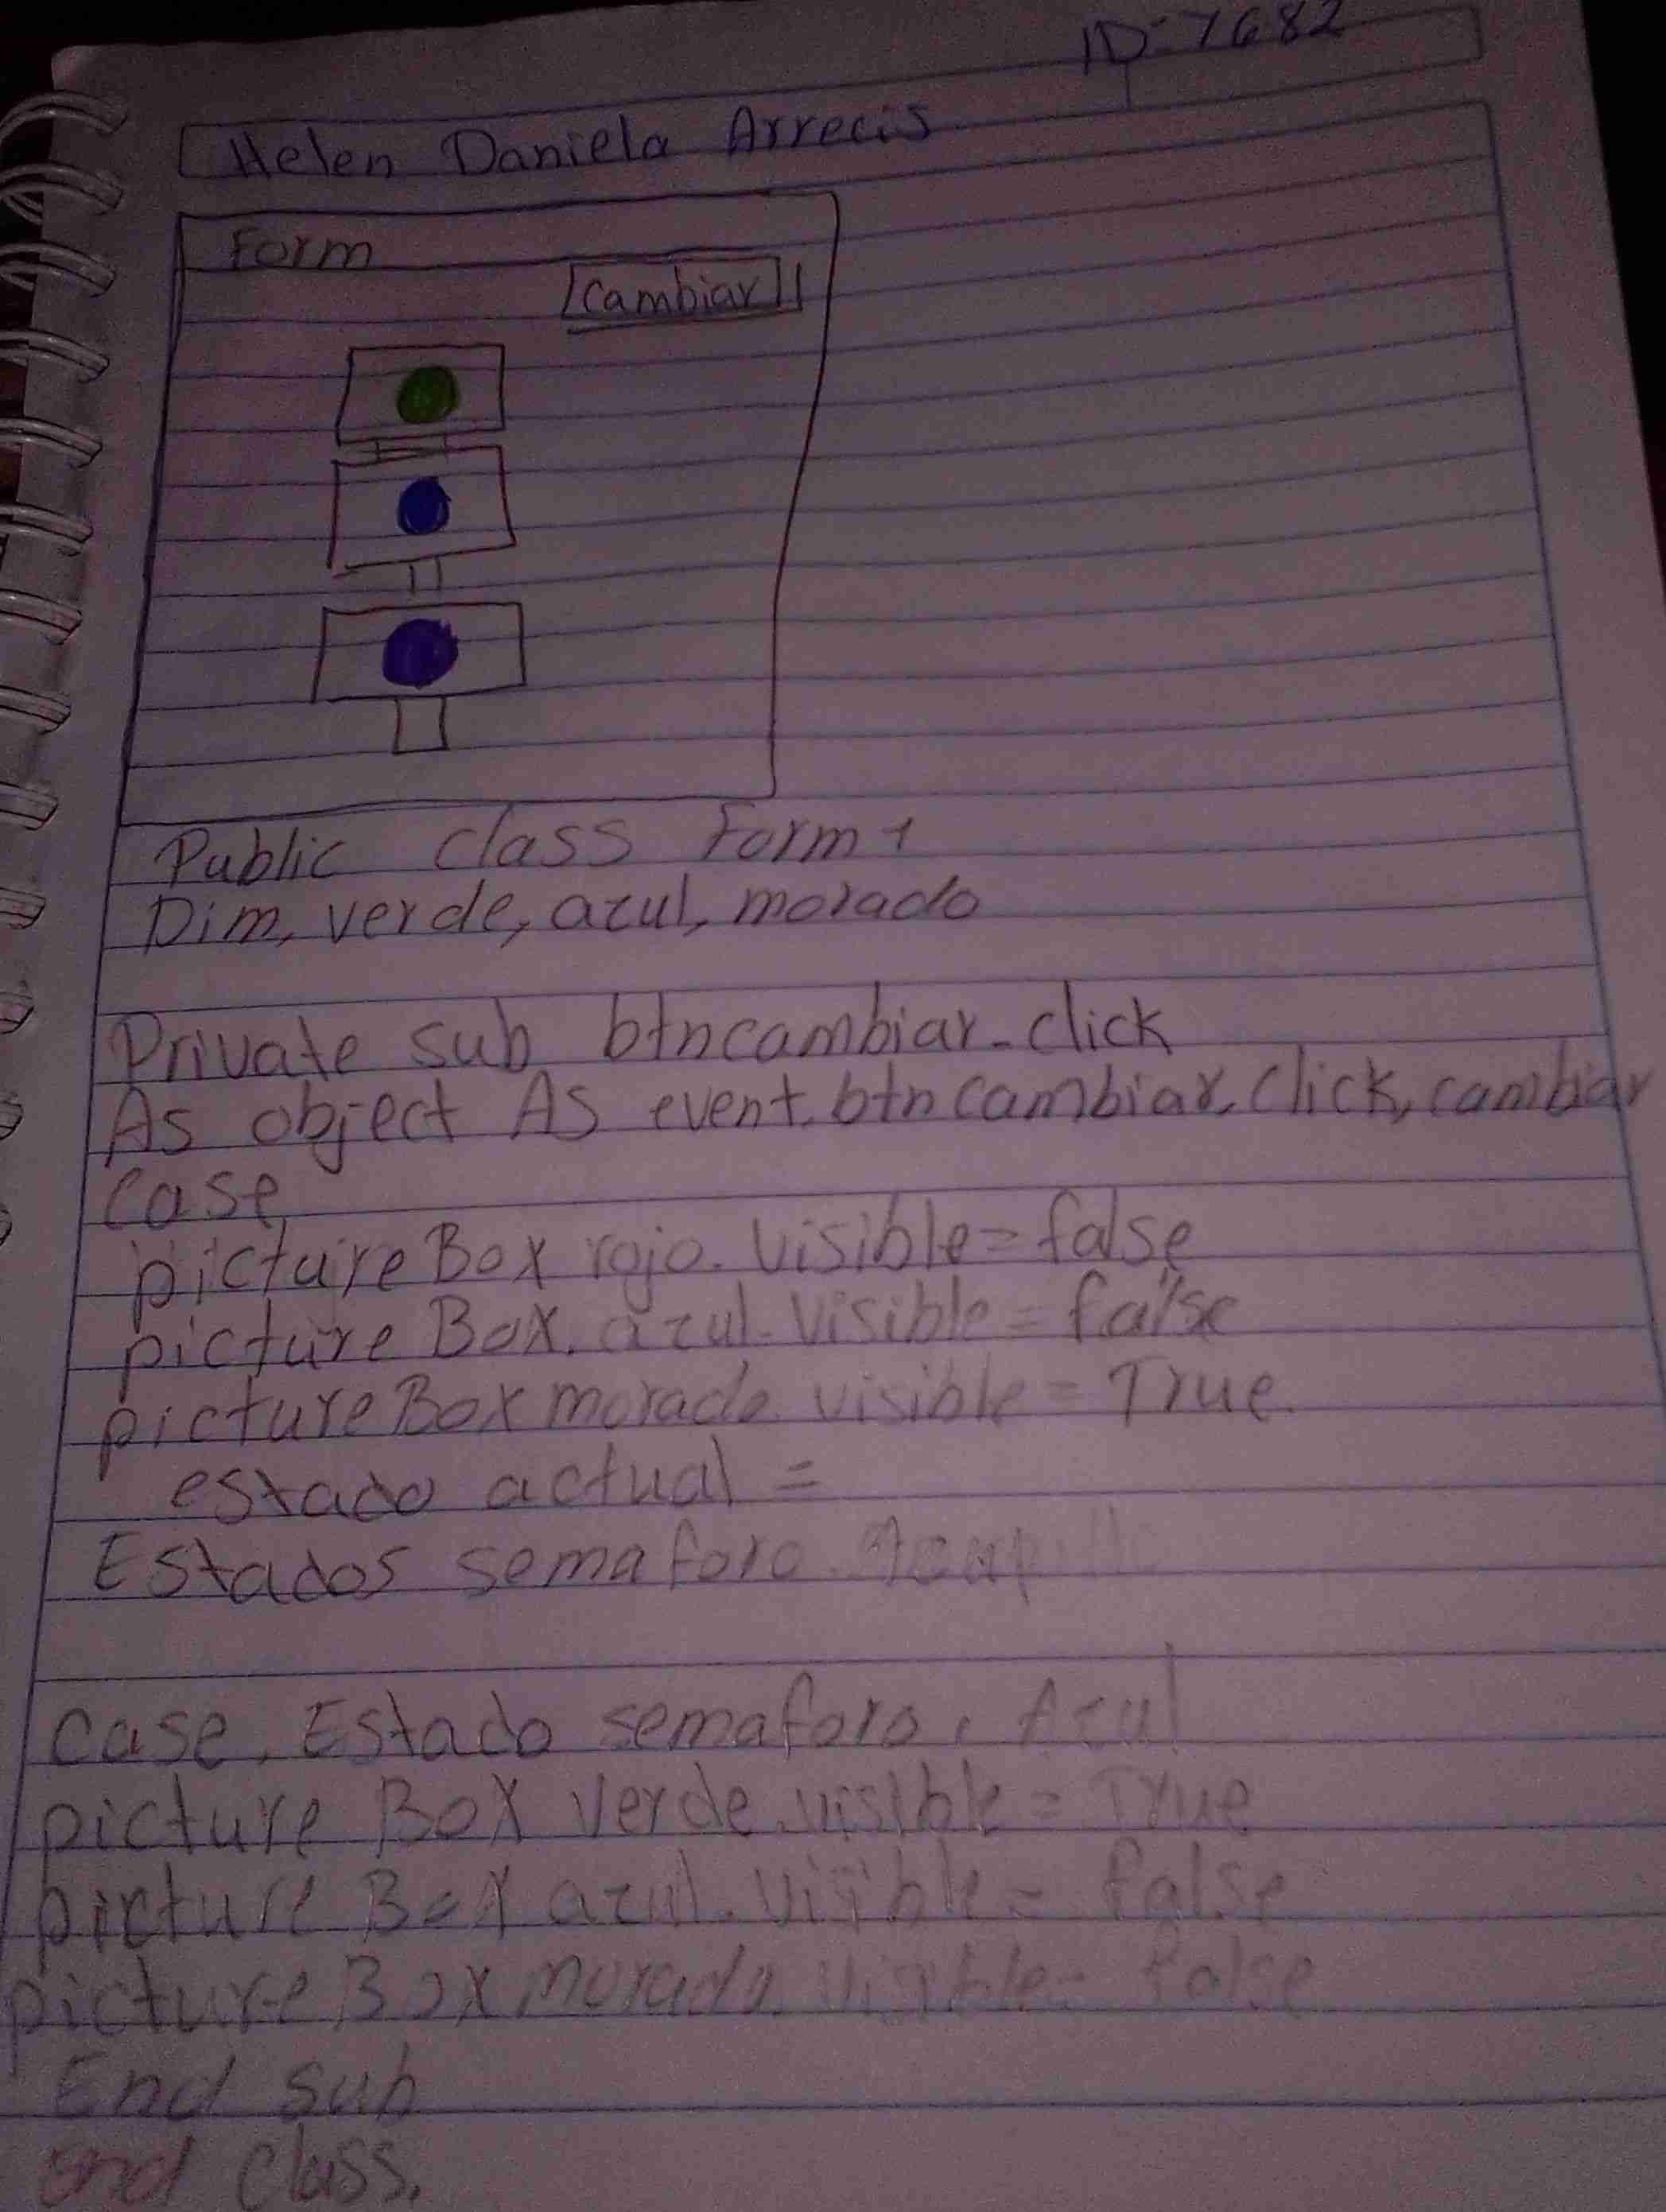 ID: 7682
Helen Daniela Arrecis
Form
Cambiar
Public class Form 1
Dim, verde, azul, morado
Private sub btncambiar-click
As object As event. btn cambiar. Click, cambiar
Case
picture Box rojo. Visible = false
picture Box. azul. Visible = false
picture Box morado. visible = True.
estado actual =
Estados semaforo.
case. Estado semaforo. Azul
picture Box verde. visible = True
picture Box azul. Visible = false
picture Box morado. Visible = false
End sub
end class.